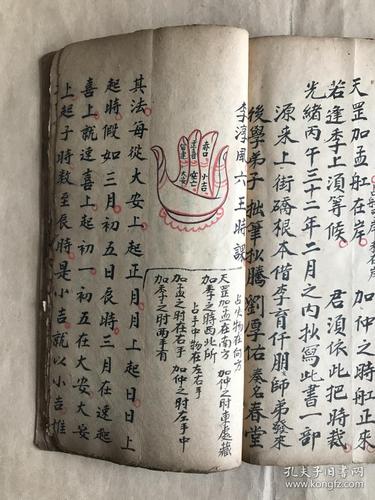 天罡加孟舡在岸 加仲之時舡正來
若逢季上須等候 君須依此把時裁
光緒丙午三十二年二月之內抄寫此書一部
源来上街磚根本偕李育仟朋師弟發來
後學弟子 拙筆抄騰 劉厚佑 奏名春堂
李淳風六壬時課
赤口 小吉
留連 大安
占伙物在何方
天罡加孟在南方 加仲之时東處藏
加季之時西北所
占手中物在左右手
加孟之时在右手 加仲之时左手中
加季之时两手有
其法每從大安上起正月月上起日日上
起時假如三月初五日辰時三月在速
喜上就速喜上起初一初五在大安大安
上起子時数至辰時是小吉就以小吉惟
孔夫子旧书网